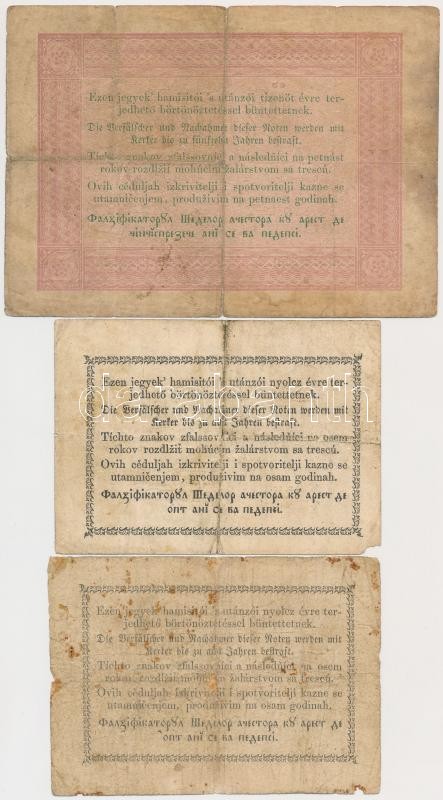 Ezen jegyek' hamisitói 's utánzói tizenöt évre ter-
jedhető börtönöztetéssel büntettetnek.
Die Verfälscher und Nachahmer dieser Noten werden mit
Kerker bis zu fünfzehn Jahren bestraft.
Tíchto znakov zfalssovníci a následníci na petnást
rokov rozdlžit mohúcim žalárstvom sa trescú.
Ovih céduljah izkrivitelji i spotvoritelji kazne se
utamničenjem, produživim na petnaest godinah.
Фалзіфікаторул Шеделор ачестора ку арест де
чінчіспрезече ані се ва педепсі.
Ezen jegyek' hamisitói 's utánzói nyolcz évre ter-
jedhető börtönöztetéssel büntettetnek.
Die Verfälscher und Nachahmer dieser Noten werden mit
Kerker bis zu acht Jahren bestraft.
Tíchto znakov zfalssovníci a následníci na osem
rokov rozdlžit mohúcim žalárstvom sa trescú.
Ovih céduljah izkrivitelji i spotvoritelji kazne se
utamničenjem, produživim na osam godinah.
Фалзіфікаторул Шеделор ачестора ку арест де
опт ані се ва педепсі.
Ezen jegyek' hamisitói 's utánzói nyolcz évre ter-
jedhető börtönöztetéssel büntettetnek.
Die Verfälscher und Nachahmer dieser Noten werden mit
Kerker bis zu acht Jahren bestraft.
Tíchto znakov zfalssovníci a následníci na osem
rokov rozdlžit mohúcim žalárstvom sa trescú.
Ovih céduljah izkrivitelji i spotvoritelji kazne se
utamničenjem, produživim na osam godinah.
Фалзіфікаторул Шеделор ачестора ку арест де
опт ані се ва педепсі.